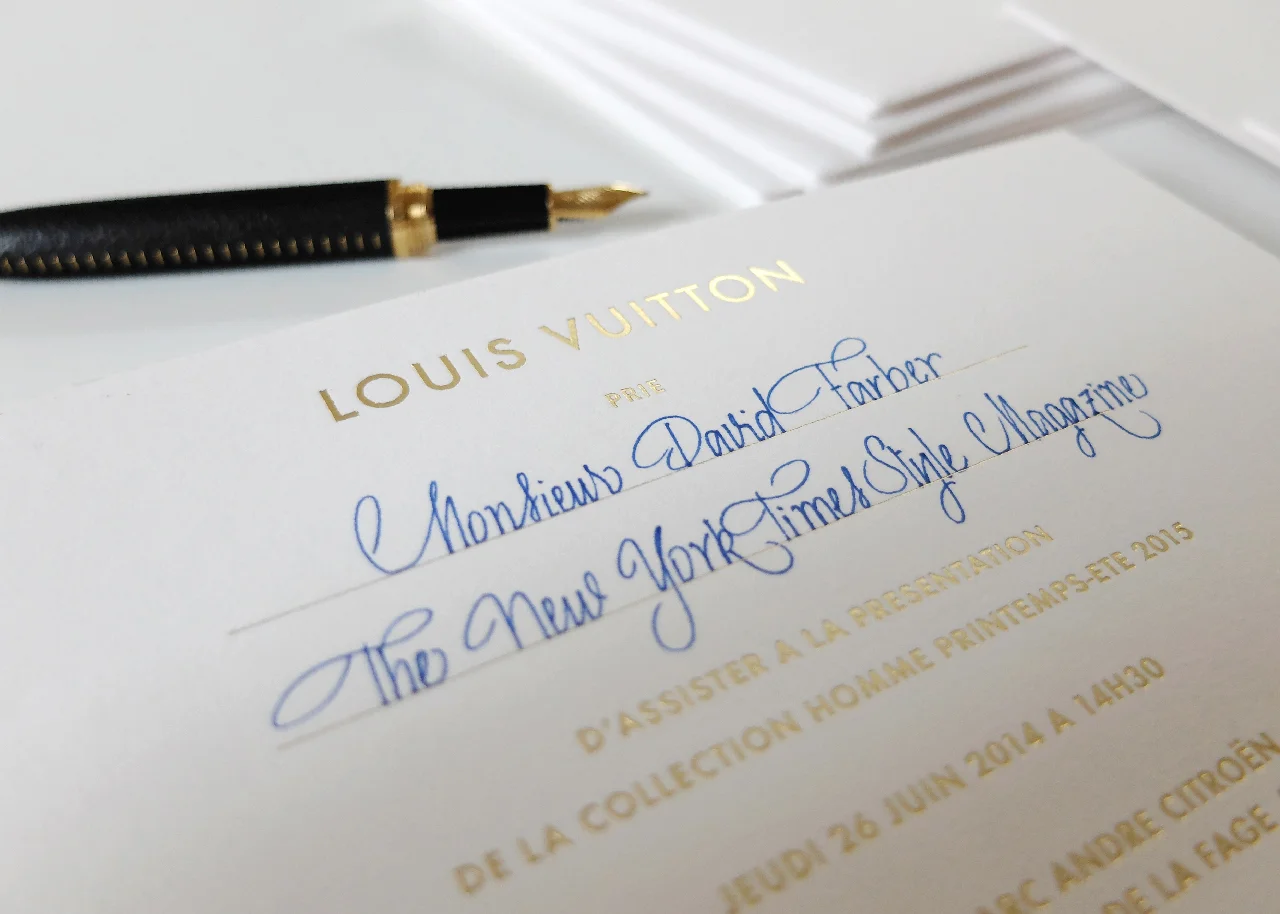 LOUIS VUITTON
PRIE
Monsieur David Farber
The New York Times Style Magazine
D'ASSISTER A LA PRESENTATION
DE LA COLLECTION HOMME PRINTEMPS-ETE 2015
JEUDI 26 JUIN 2014 A 14H30
ANDRE CITROËN
DE LA FAGE